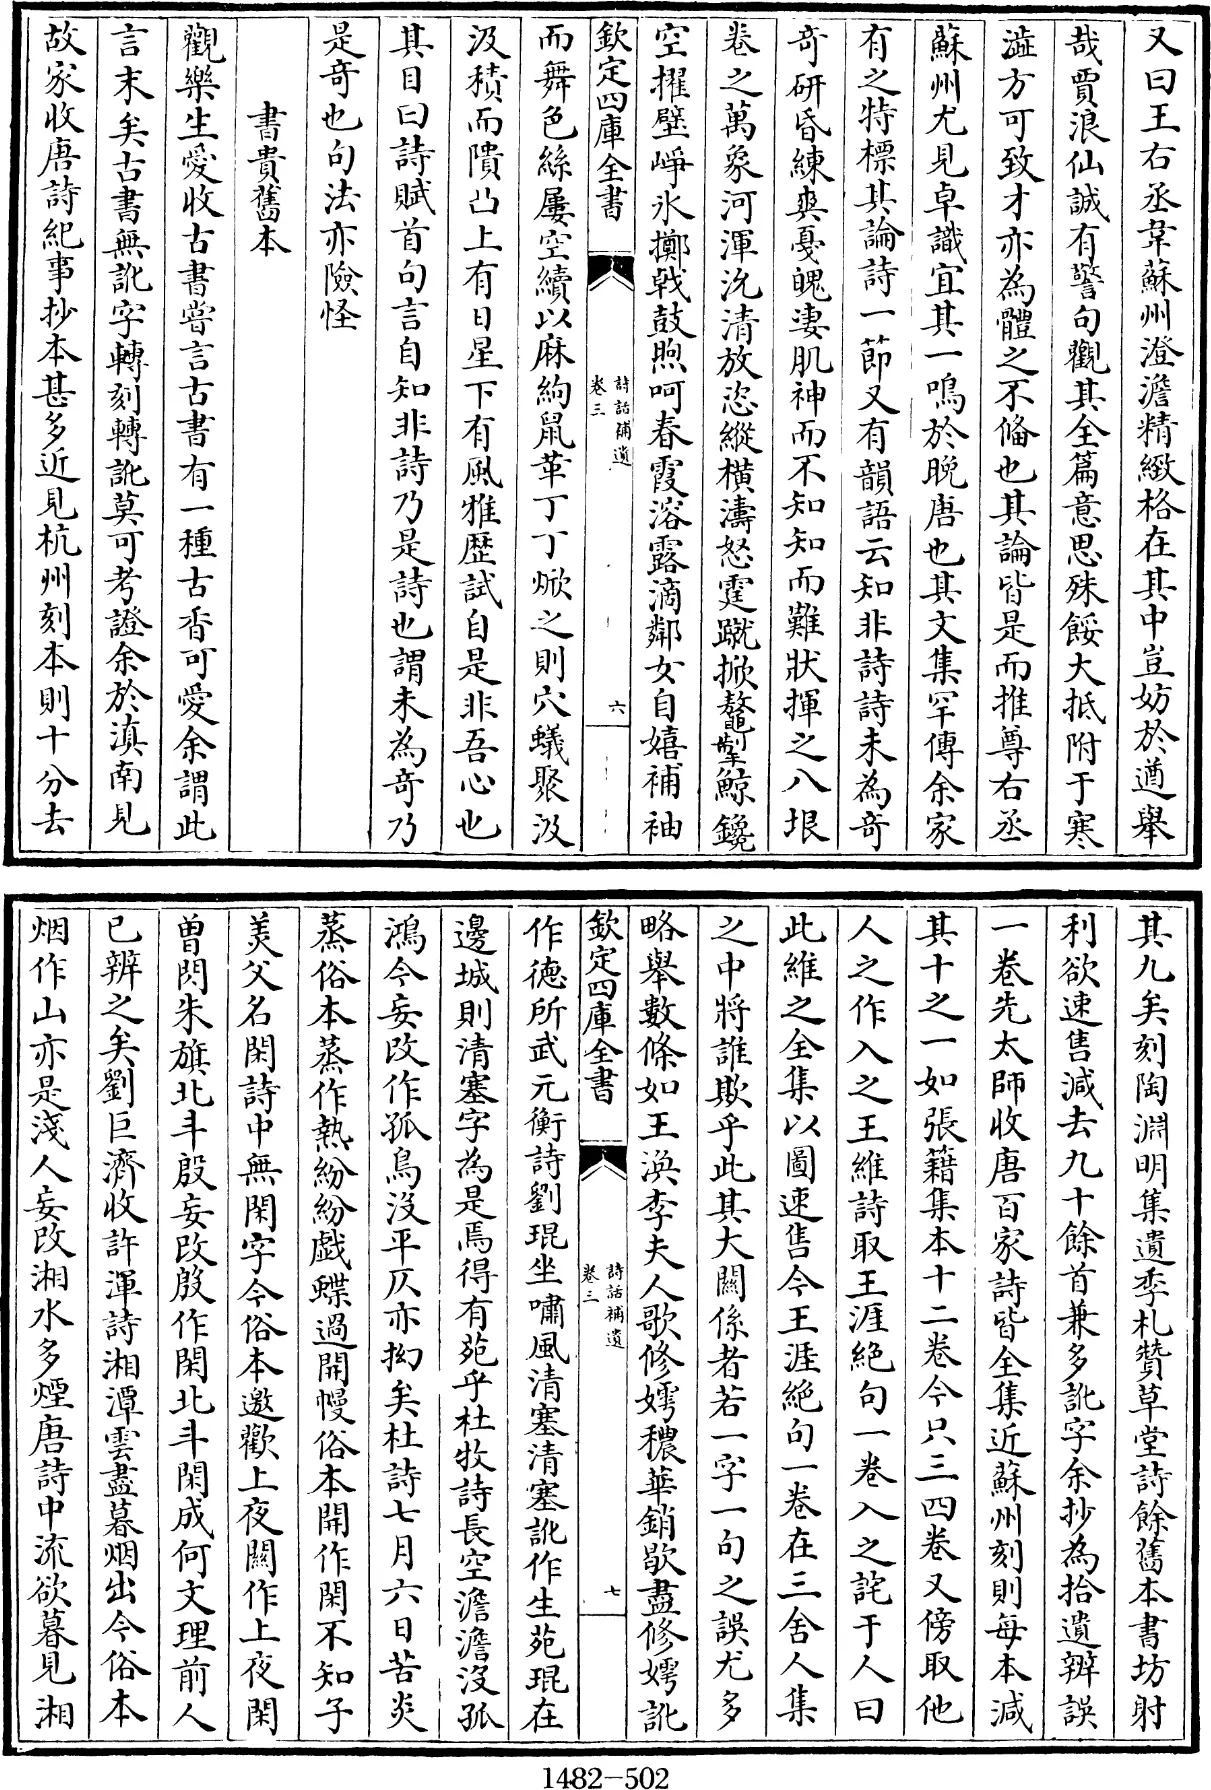 又曰王右丞韋蘇州澄澹精緻格在其中豈妨於遒舉
哉賈浪仙誠有警句觀其全篇意思殊餒大抵附于寒
澁方可致才亦為體之不備也其論皆是而推尊右丞
蘇州尤見卓識宜其一鳴於晚唐也其文集罕傳余家
有之特標其論詩一節又有韻語云知非詩詩未為奇
奇研昏練爽戞魄凄肌神而不知知而難狀揮之八垠
卷之萬象河渾沇清放恣縱橫濤怒霆蹴掀鼇掣鯨鑱
空擢壁崢氷擲㦸鼓煦呵春霞溶露滴鄰女自嬉補袖
欽定四庫全書
詩話補遺
卷三
六
而舞色絲屢空續以麻絇鼠革丁丁焮之則穴蟻聚汲
汲積而隤凸上有日星下有風雅歴試自是非吾心也
其目曰詩賦首句言自知非詩乃是詩也謂未為奇乃
是奇也句法亦險怪
書貴舊本
觀樂生愛收古書嘗言古書有一種古香可愛余謂此
言末矣古書無訛字轉刻轉訛莫可考證余於滇南見
故家收唐詩紀事抄本甚多近見杭州刻本則十分去
其九矣刻陶淵明集遺季札贊草堂詩餘舊本書坊射
利欲速售減去九十餘首兼多訛字余抄為拾遺辨誤
一卷先太師收唐百家詩皆全集近蘇州刻則每本減
其十之一如張籍集本十二卷今只三四卷又傍取他
人之作入之王維詩取王涯絶句一卷入之詫于人曰
此維之全集以圖速售今王涯絶句一卷在三舍人集
之中將誰欺乎此其大關係者若一字一句之誤尤多
略舉數條如王渙李夫人歌修嫮穠華銷歇盡修嫮訛
欽定四庫全書
詩話補遺
卷三
七
作德所武元衡詩劉琨坐嘯風清塞清塞訛作生苑琨在
邊城則清塞字為是焉得有苑乎杜牧詩長空澹澹沒孤
鴻今妄改作孤鳥沒平仄亦拗矣杜詩七月六日苦炎
蒸俗本蒸作熱紛紛戲蝶過開幔俗本開作閑不知子
美父名閑詩中無閑字今俗本邀歡上夜關作上夜閑
曽閃朱旗北斗殷妄改殷作閑北斗閑成何文理前人
已辨之矣劉巨濟收許渾詩湘潭雲盡暮烟出今俗本
烟作山亦是淺人妄改湘水多煙唐詩中流欲暮見湘
1482—502